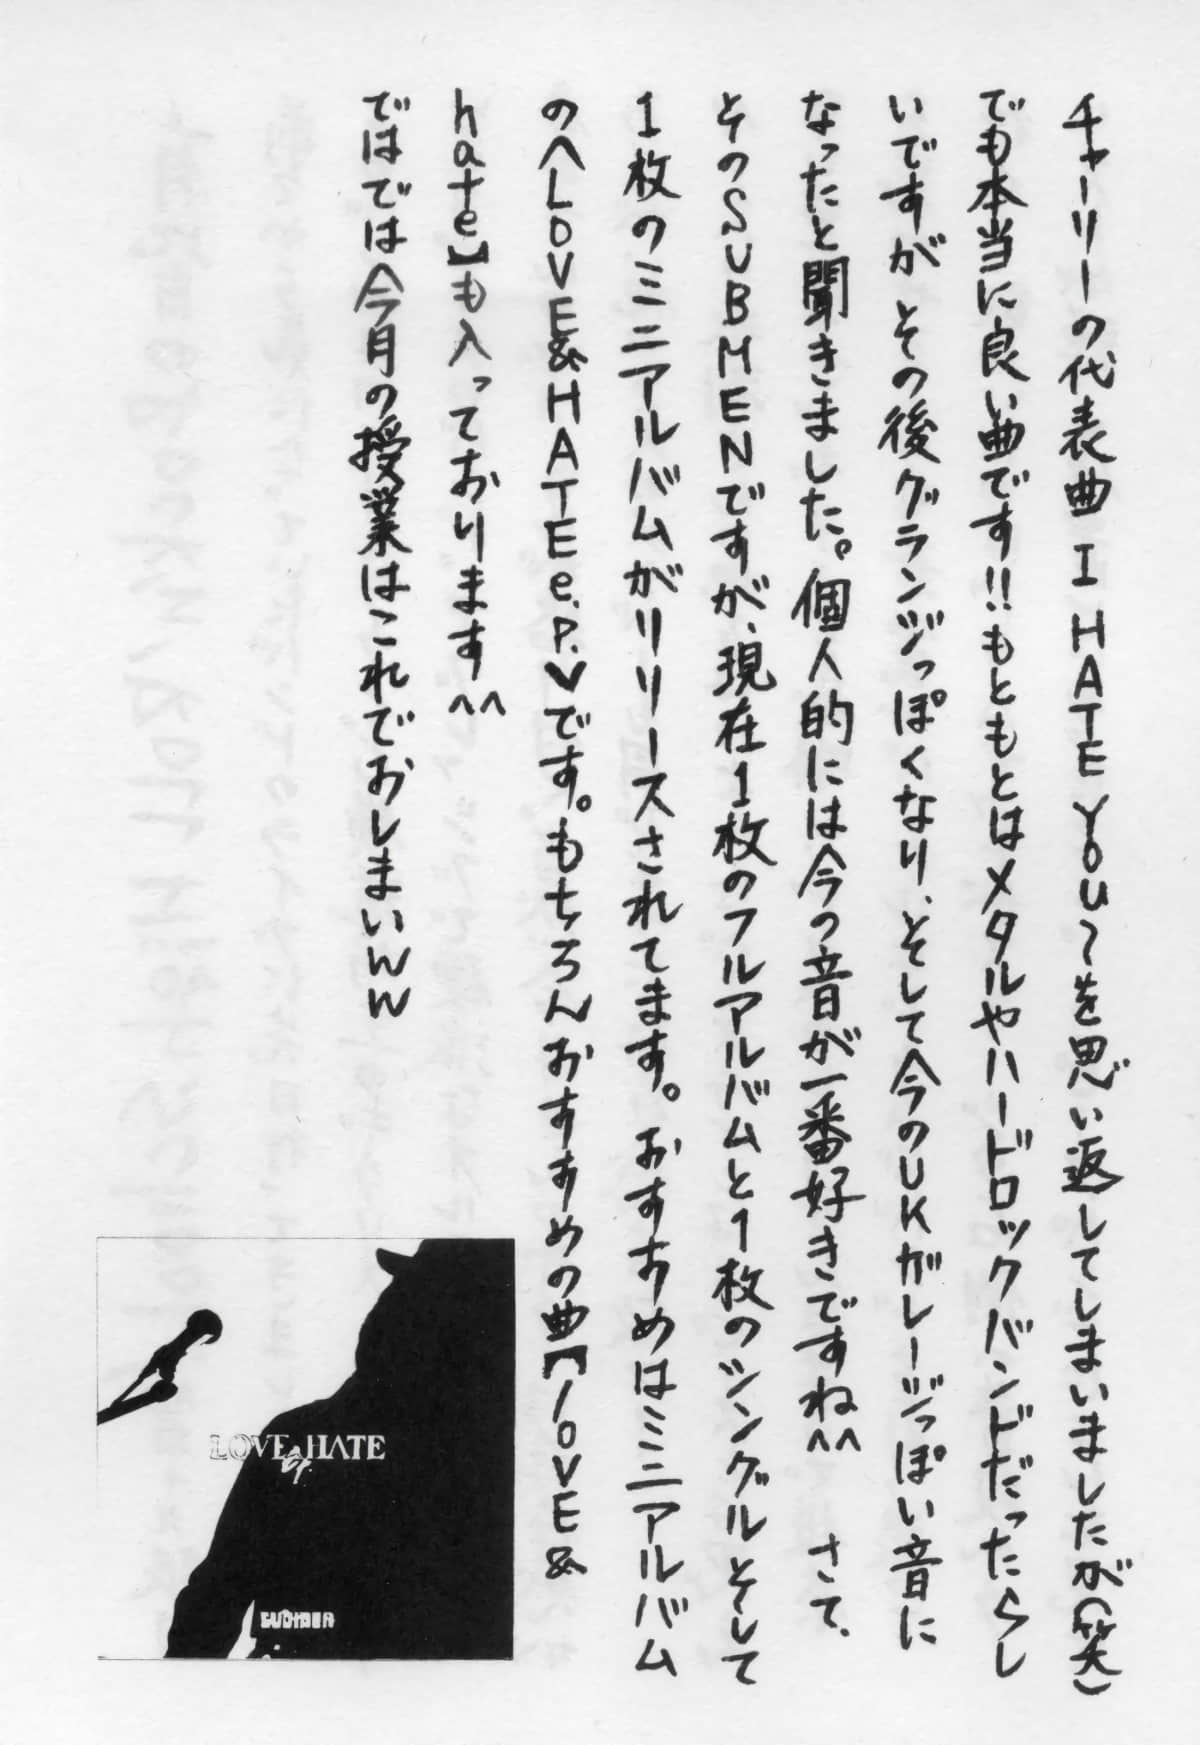 チャーリーの代表曲 I HATE YOU〜を思い返してしまいましたが(笑)
でも本当に良い曲です!!もともとはメタルやハードロックバンドだったらし
いですが その後グランジっぽくなり、そして今のUKガレージっぽい音に
なったと聞きました。個人的には今の音が一番好きですね^^ さて、
そのSUBMENですが、現在1枚のフルアルバムと1枚のシングルそして
1枚のミニアルバムがリリースされてます。おすすめはミニアルバム
の〈LOVE&HATE e.P.〉です。もちろんおすすめの曲【lOVE&
hate】も入っております^^
ではでは今月の授業はこれでおしまいWW
LOVE & HATE